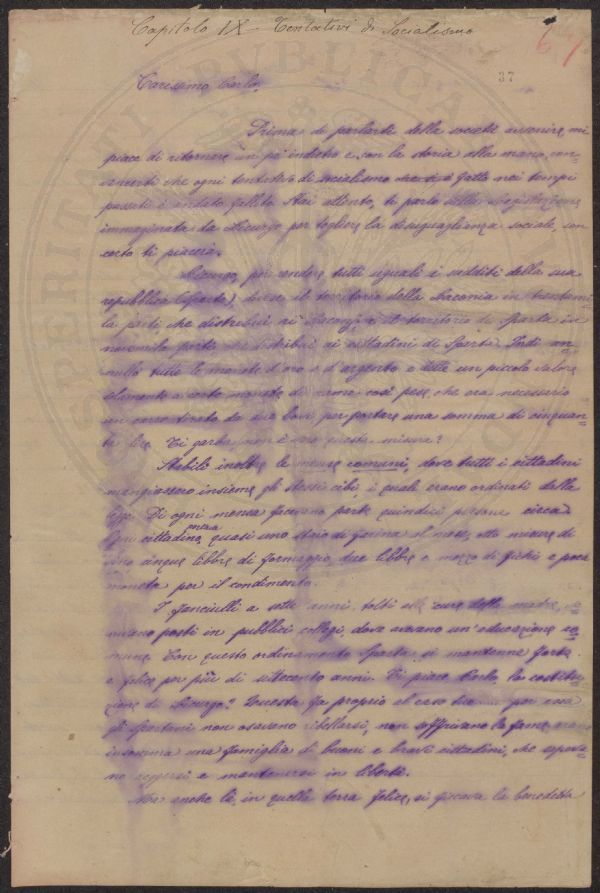 Capitolo IX - Tentativi di Socialismo
67
37
Carissimo Carlo,
Prima di parlarti della società avvenire, mi
piace di ritornare un po' indietro e, con la storia alla mano, con-
vincerti che ogni tentativo di socialismo che si è fatto nei tempi
passati è andato fallito. Stai attento, ti parlo della legislazione
immaginata da Licurgo per togliere la disuguaglianza sociale, son
certo ti piacerà.
Licurgo, per rendere tutti uguali i sudditi della sua
repubblica (Sparta), divise il territorio della Laconia in trentami-
la parti, che distribuì ai Laconi, e il territorio di Sparta in
novemila parti, che distribuì ai cittadini di Sparta. Indi an-
nullò tutte le monete d'oro e d'argento e dette un piccolo valore
solamente a certe monete di rame così pese, che era necessario
un carro tirato da due bovi per portare una somma di cinquan-
ta lire. Ti garba, non è vero questa misura?
Stabilì inoltre le mense comuni, dove tutti i cittadini
mangiassero insieme gli stessi cibi, i quali erano ordinati dalla
legge. Di ogni mensa facevano parte quindici persone circa.
Ogni cittadino quasi uno staio di farina al mese, otto misure di
vino, cinque libbre di formaggio, due libbre e mezzo di fichi e poca
moneta per il condimento.
I fanciulli a sette anni, tolti alle cure della madre, ve-
nivano posti in pubblici collegi, dove avevano un'educazione co-
mune. Con questo ordinamento Sparta si mantenne forte
e felice per più di settecento anni. Ti piace Carlo, la costitu-
zione di Licurgo? Questa fa proprio al caso tuo..... per essa
gli Spartani non osavano ribellarsi, non soffrivano la fame, erano
insomma una famiglia di buoni e bravi cittadini, che sapeva-
no reggersi e mantenersi in libertà.
Ma anche là, in quella terra felice, si ficcava la benedetta